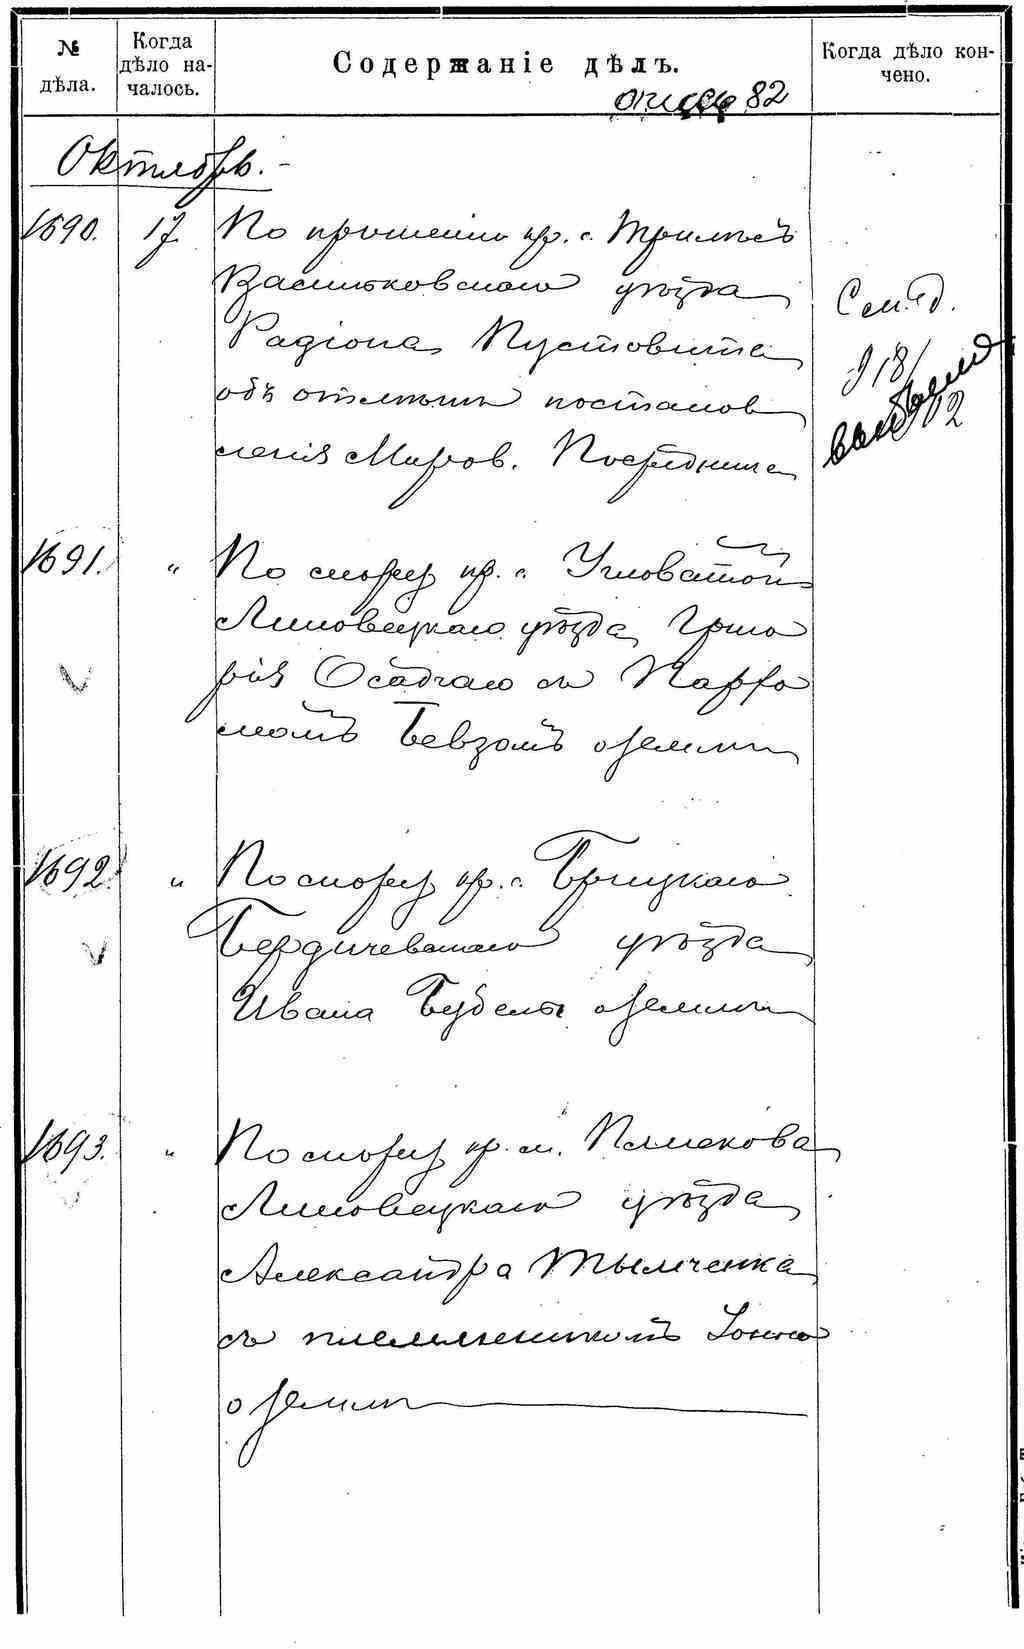 № дѣла.
Когда дѣло началось.
Содержаніе дѣлъ.
Когда дѣло кончено.
опись 82
Октябрь.
1690. 17 По прошенію кр. с. Трилѣсъ
Васильковскаго уѣзда
Радіона Пустовита
объ отмѣнѣ постанов
ленія Миров. Посредника
1691. " По спору кр. с. Угловатой
Липовецкаго уѣзда Григо
рія Осадчаго съ Парфе
номъ Бевзомъ о землѣ
1692. " По спору кр. с. Брицкаго
Бердичевскаго уѣзда
Ивана о землѣ
1693. " По спору кр. м.
Липовецкаго уѣзда
Александра Тымченка
съ племянникомъ
о землѣ